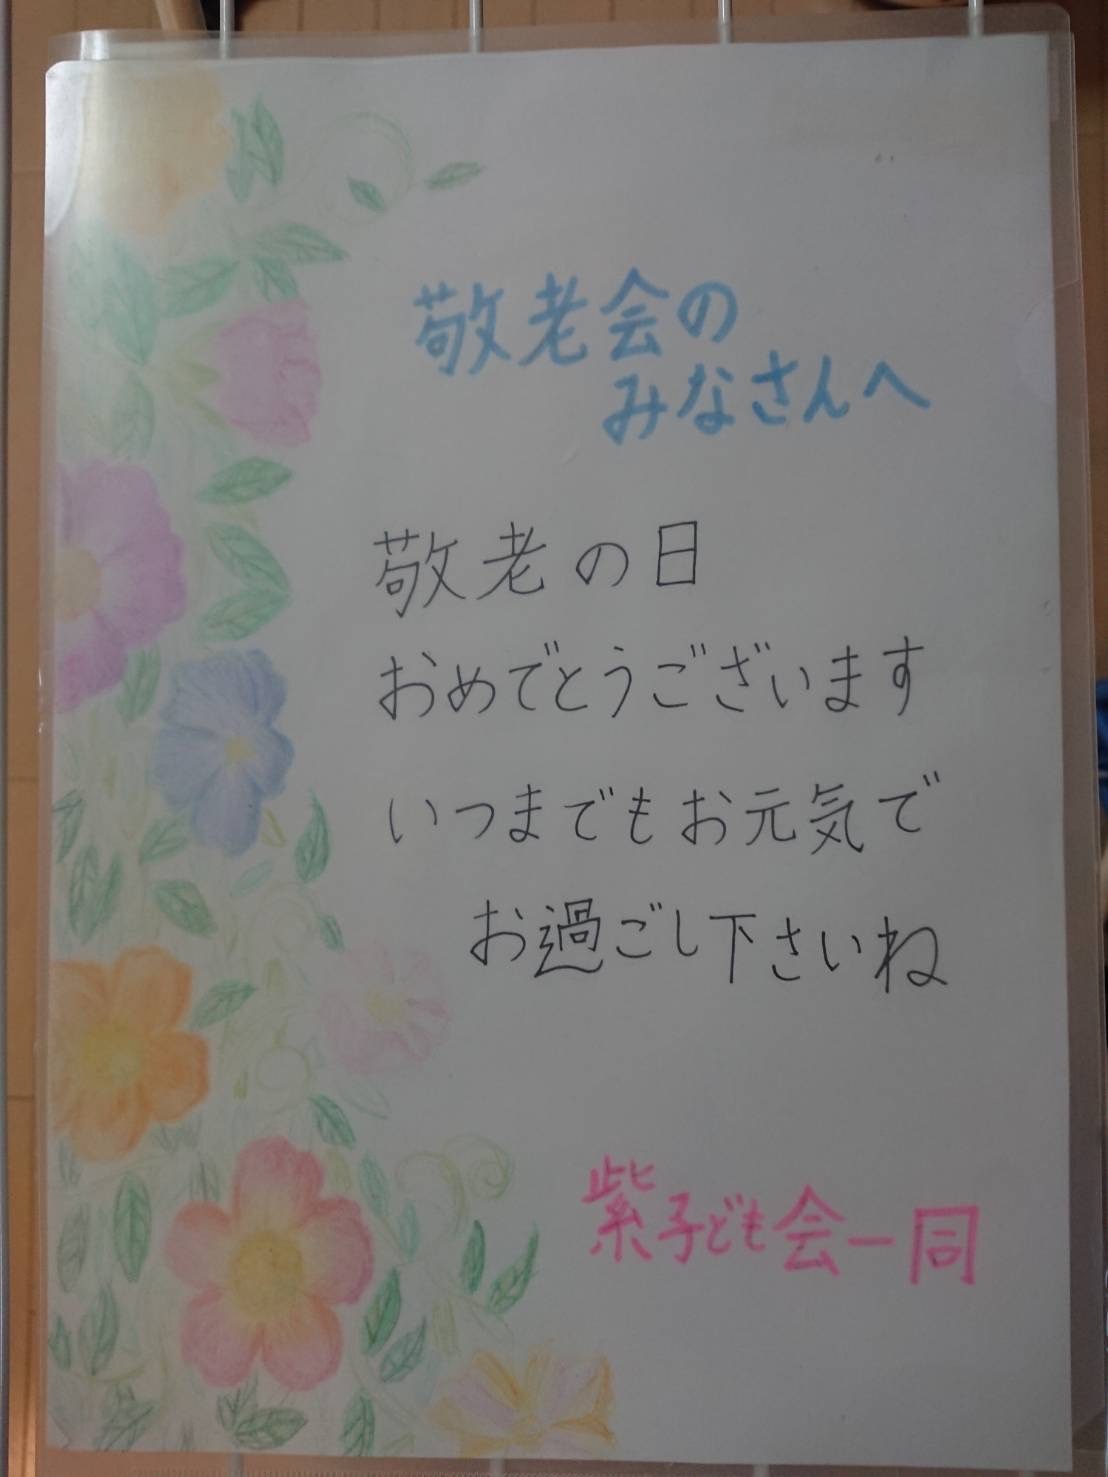 敬老会の
みなさんへ
敬老の日
おめでとうございます
いつまでもお元気で
お過ごし下さいね
紫子ども会一同